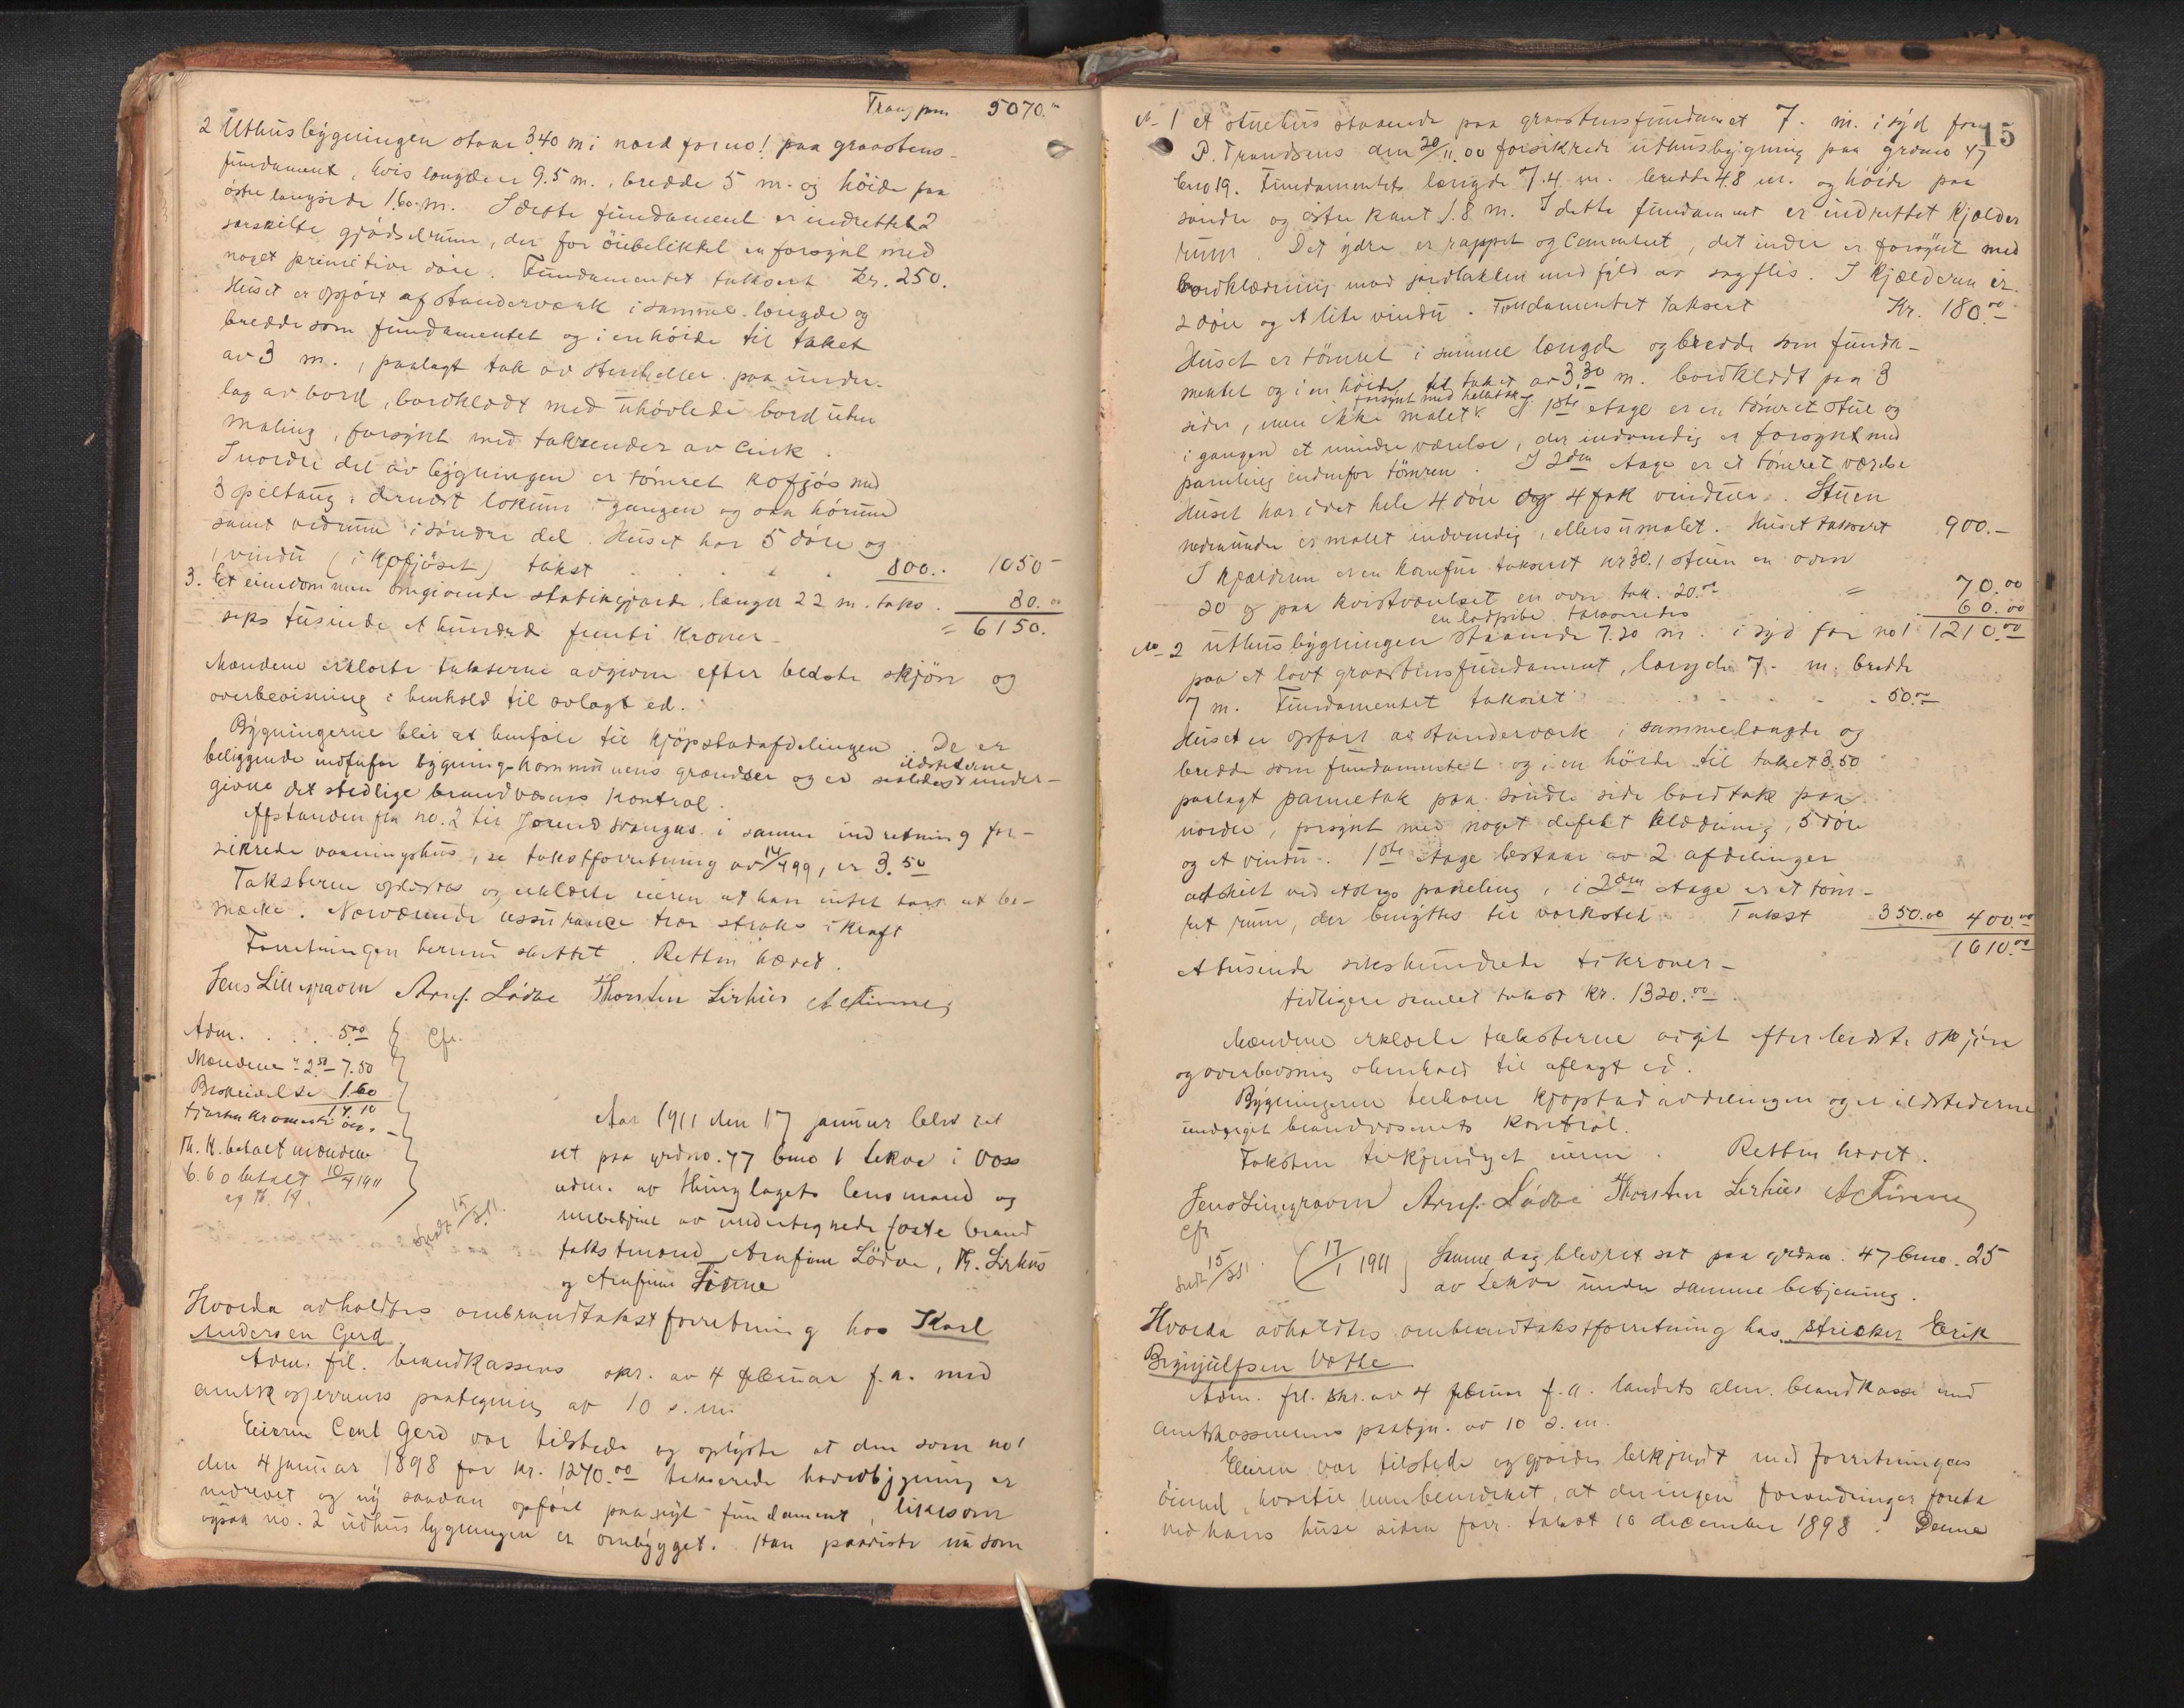 Transpor. 5070.00
2 Uthusbygningen staar 3.40 m i nord for no 1 paa graastens-
fundament, hvis længde er 9.5 m., bredde 5 m. og höide paa
östre langside 1.60 m. I dette fundament er indrettet 2
særskilte gjödselrum, der for öiebelikket er forsynt med
noget primitive döre. Fundamentet taksert Kr. 250.
Huset er opfört af standerværk i samme længde og
bredde som fundamentet og i en höide til taket
av 3 m., paalagt tak av stenheller paa under-
lag av bord, bordklædt med uhövlede bord uten
maling, forsynt med takrender av cink.
I nordre del av bygningen er tömret kofjös med
3 spiltaug, dernæst lokum i gangen og oaa hörum
samt vedrum i söndre del. Huset har 5 döre og
1 vindu (i kofjöset) takst 800.. 1050-
3. Et eiendommen omgivende stakitgjærde, længer 22 m. taks. 30.00
seks tusinde et hundred femti kroner - = 6150.
Mændene erklærte takserne avgivne efter bedste skjön og
overbevisning i henhold til avlagt ed.
Bygningerne blir at henföre til kjöpstadafdelingen. De er
beliggende indenfor bygningskommunens grændser og er ildstederne under-
givne det stedlige brandvæsens kontrol.
Afstanden fra no. 2 til Jorund Svangas i samme indretning for-
sikrede vaaningshus, se takstforretning av 14/4 99, er 3.50
Taksterne oplæstes og erklærte eieren at han intet har at be-
mærke. Nærværende assurance træ straks i kraft
Forretningen hermed sluttet. Retten hævet.
Jens Lillegraven Arnf. Lödve Thorsten Lirhus A Finne
Adm. . . . . 5.00 Cfr.
Mændene à 2.50 7.50
Beskrivelse 1.60
14.10
fjorten kroner ti öre. -
Th. K. betalt mændene
6.60 betalt 10/4 1911
af Th. K.
Sendt 15/3 11.
Aar 1911 den 17 januar blev ret
sat paa grdno. 47 bno 1 Lekve i Voss
adm. av thinglagets lensmand og
mebetjent av undertegnede faste brand
takstmænd Arnfinn Lödve, Th. Lirhus
og Arnfinn Finne
Hvorda avholdtes ombrandtakstforretning hos Karl
Andersen Gerd.
Adm. frl. brandkassens skr. av 4 februar f. a. med
amtskasserernes paategning av 10 s. m.
Eieren Carl Gerd var tilstede og oplyste at den som no 1
den 4 januar 1898 for kr. 1270.00 takserede hovedbygning er
nedrevet og ny saadan opfört paa nyt fundament, likesom
ogsaa no. 2 udhusbygningen er ombygget. Han paaviste nu som
15
No 1 et stuehus staaende paa graastensfundament 7. m. i syd for
P. Trondsens den 20/11.00 forsikrede uthusbygning paa grdno 47
bno 19. Fundamentets længde 7.4 m. bredde 4.8 m. og höide paa
söndre og östre kant 1.8 m. I dette fundament er indrettet kjælder
rum. Det ydre er rappet og cementert, det indre er forsynt med
bordklædning mod jordbakken med fyld av sagflis. I kjælderen er
2 döre og et lite vindu. Fundamentet taksert Kr. 180.00
Huset er tömret i samme længde og bredde som funda-
mentet og i en höide til taket av 3.30 m. bordklædt paa 3
sider, men ikke malet, forsynt med helletak. I 1ste etage er en tömret stue og
i gangen et mindre værelse, der indvendig er forsynt med
paneling indenfor tömren. I 2den etage er et tömret værelse
Huset har i det hele 4 döre og 4 fak vinduer. Stuen
nedenunder er malet indvendig, ellers umalet. Huset taksert 900.-
I kjælderen er en komfur taksert kr 30. i stuen en ovn
20 og paa kvistværelset en ovn tak. 20.00 = 70.00
en ladpibe takseredes 60.00
No 2 uthusbygningen staaende 7.20 m. i syd for no 1 1210.00
paa et lavt graastensfundament, længde 7. m. bredde
7 m. Fundamentet taksert 50.00
Huset er opfört av standerværk i samme længde og
bredde som fundamentet og i en höide til taket 3.50
paalagt pannetak paa söndre side bordtake paa
nordre, forsynt med noget defekt klædning, 5 döre
og et vindu. 1ste etage bestaar av 2 afdelinger
adskilt ved paneling, i 2den etage er et töm-
ret rum, der benyttes til verksted. Takst 350.00 400.00
1610.00
Et tusinde sekshundrede ti kroner -
tidligere samlet takst kr. 1320.00
Mændene erklærte taksterne avgit efter bedste skjön
og overbevisning i henhold til aflagt ed.
Bygningerne tilhörer kjöpstadavdelingen og er ildstederne
undergit brandvæsenets kontrol.
Taksten tilkjendegit eieren. Retten hævet.
Jens Lillegraven Arnf. Lödve Thorsten Lirhus A Finne
Cfr
Sendt 15/3 11. (17/1 1911) Samme dag blev ret sat paa grdno. 47 bno. 25
av Lekve under samme betjening.
Hvorda avholdtes ombrandtakstforretning hos stricker Erik
Brynjulfsen Væthe
Adm. frl. skr. av 4 februar f. a. landets alm. brandkasse med
amtskassererens paategn. av 10 s. m.
Eieren var tilstede og gjordes bekjendt med forretningens
öiemed, hvortil han bemærket, at der ingen forandringer foreta
ved hans huse siden forr. takst 16 december 1898. Denne